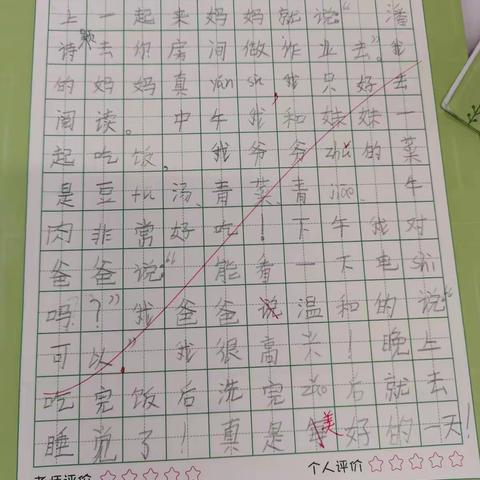 上一起来妈妈就说“潘
诗颖去你房间做作业去。”我
的妈妈真yán sù,我只好去
阅读。中午我和妹妹一
起吃饭,我爷爷zhǔ的菜
是豆fu汤、青菜、青jiāo、牛
肉非常好吃!下午我对
爸爸说:“能看一下电shì
吗?”我爸爸说温和的说“
可以”我很高兴!晚上
吃完饭后洗完zǎo后就去
睡觉了!真是美好的一天!
老师评价 个人评价